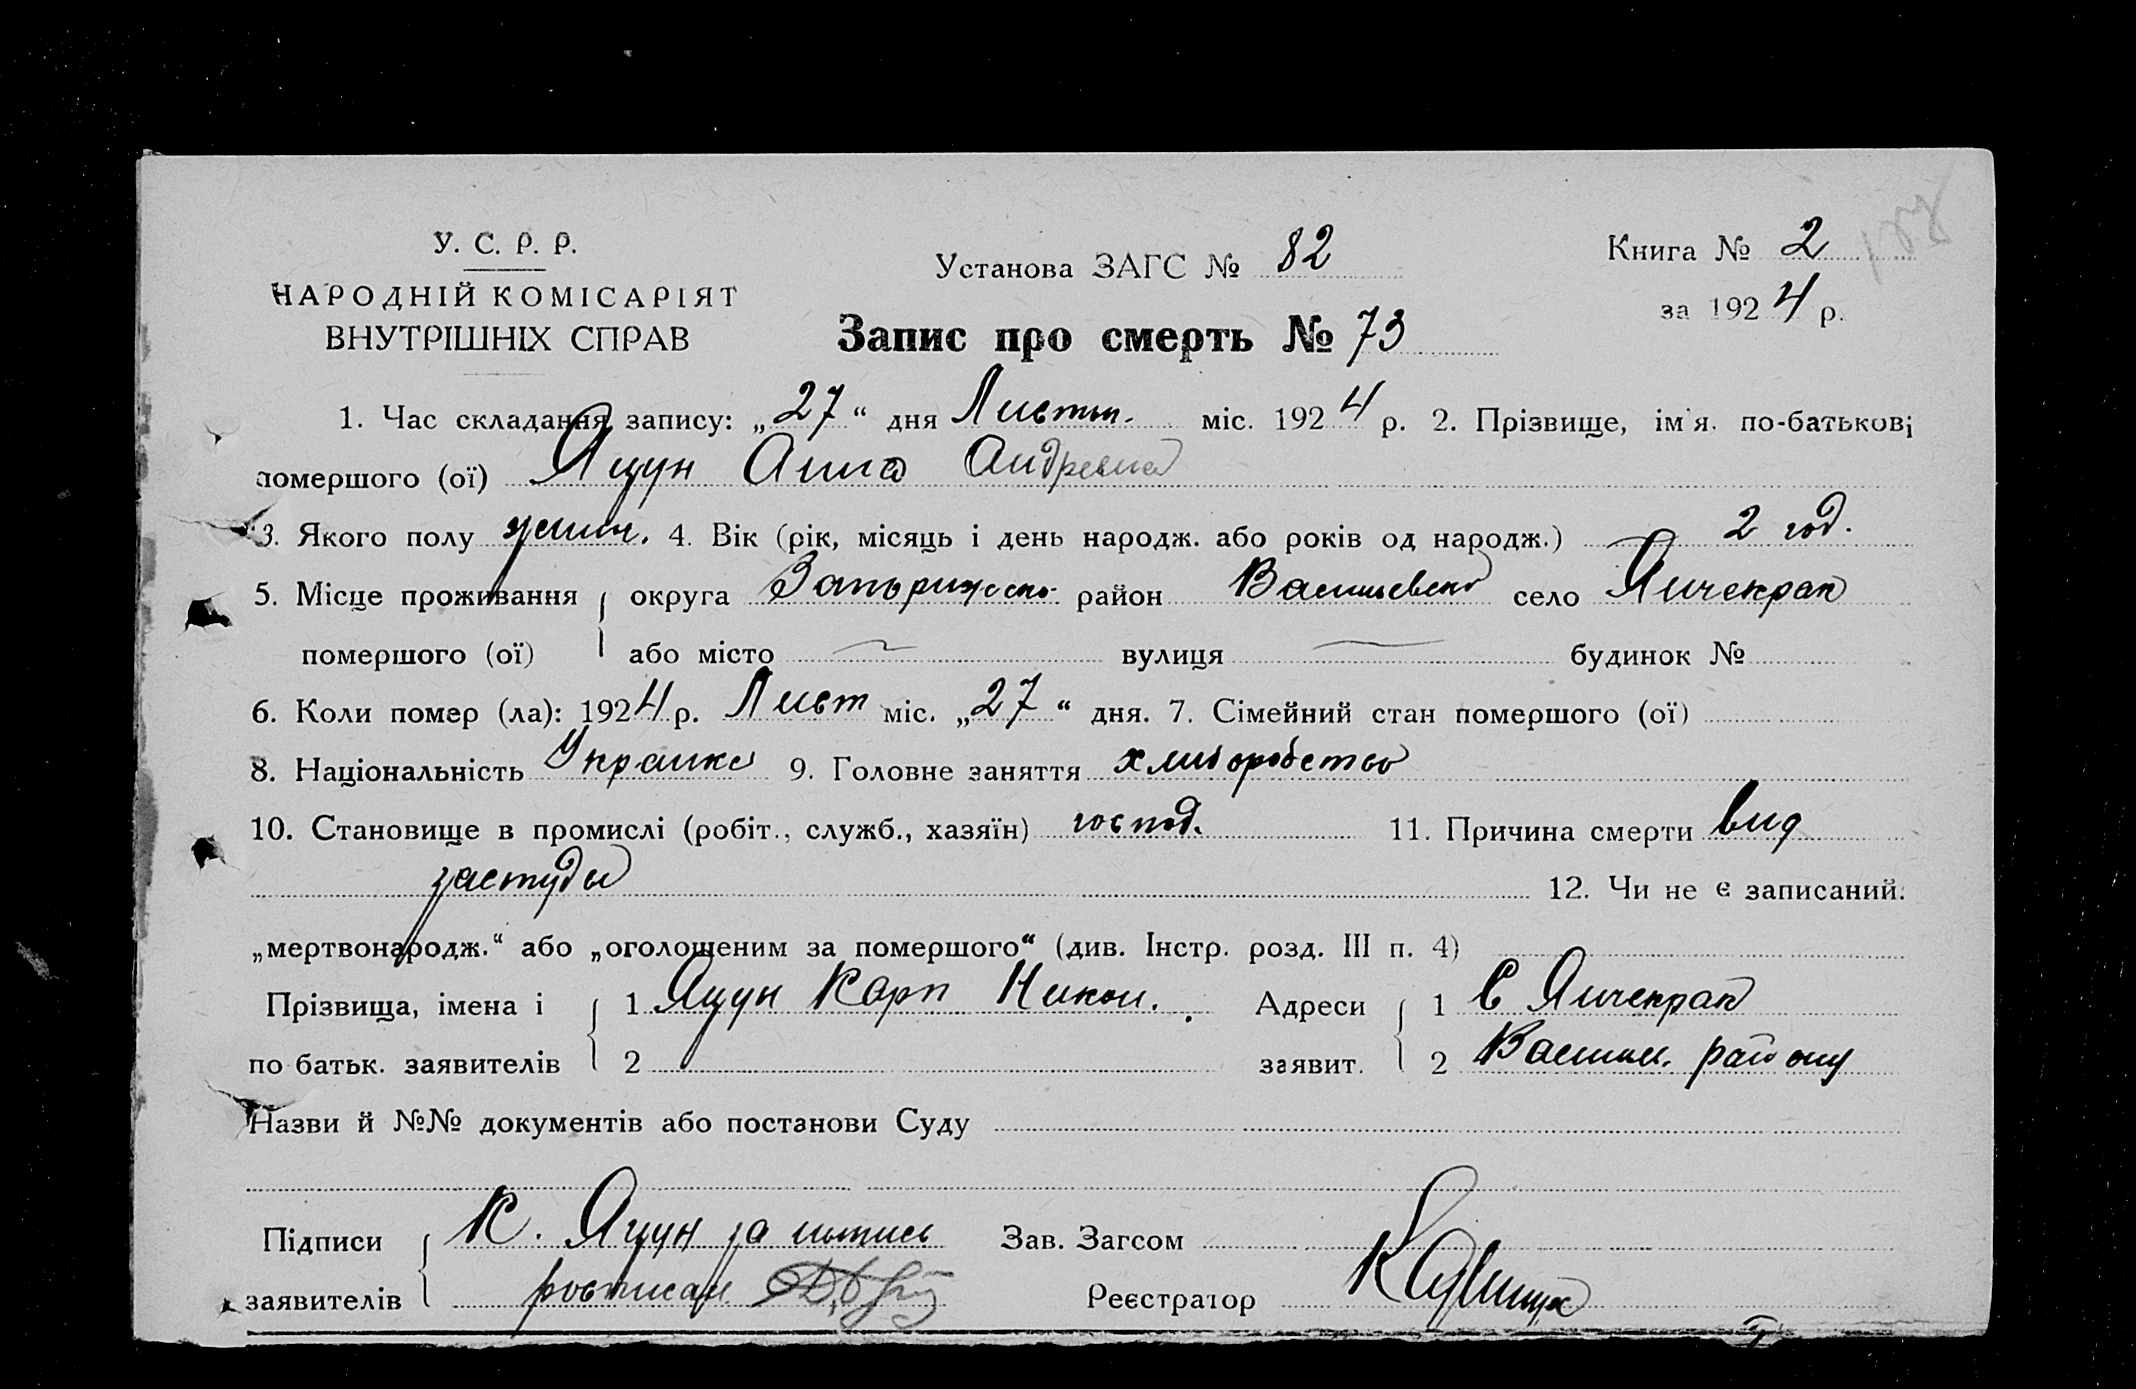 У. С. Р. Р.
НАРОДНІЙ КОМІСАРІЯТ
ВНУТРІШНІХ СПРАВ
Установа ЗАГС № 82
Книга № 2
за 1924 р.
Запис про смерть № 73
1. Час складання запису: „27“ дня Листоп. міс. 1924 р. 2. Прізвище, ім'я. по-батькові
помершого (ої) Яцун Анна Андреевна
3. Якого полу женск. 4. Вік (рік, місяць і день народж. або років од народж.) 2 год.
5. Місце проживання округа Запорижско район Василевско село Янчекрак
помершого (ої) або місто вулиця будинок №
6. Коли помер (ла): 1924 р. Лист міс. „27“ дня. 7. Сімейний стан помершого (ої)
8. Національність Украинка 9. Головне заняття хлиборобство
10. Становище в промислі (робіт., служб., хазяїн) господ. 11. Причина смерти вид
застуды 12. Чи не є записаний.
„мертвонародж.“ або „оголошеним за помершого“ (див. Інстр. розд. III п. 4)
Прізвища, імена і 1 Яцун Карп Никон. Адреси 1 С Янчекрак
по батьк. заявителів 2 заявит. 2 Васили. району
Назви й №№ документів або постанови Суду
Підписи К. Яцун за Зав. Загсом
заявителів росписал Реєстратор